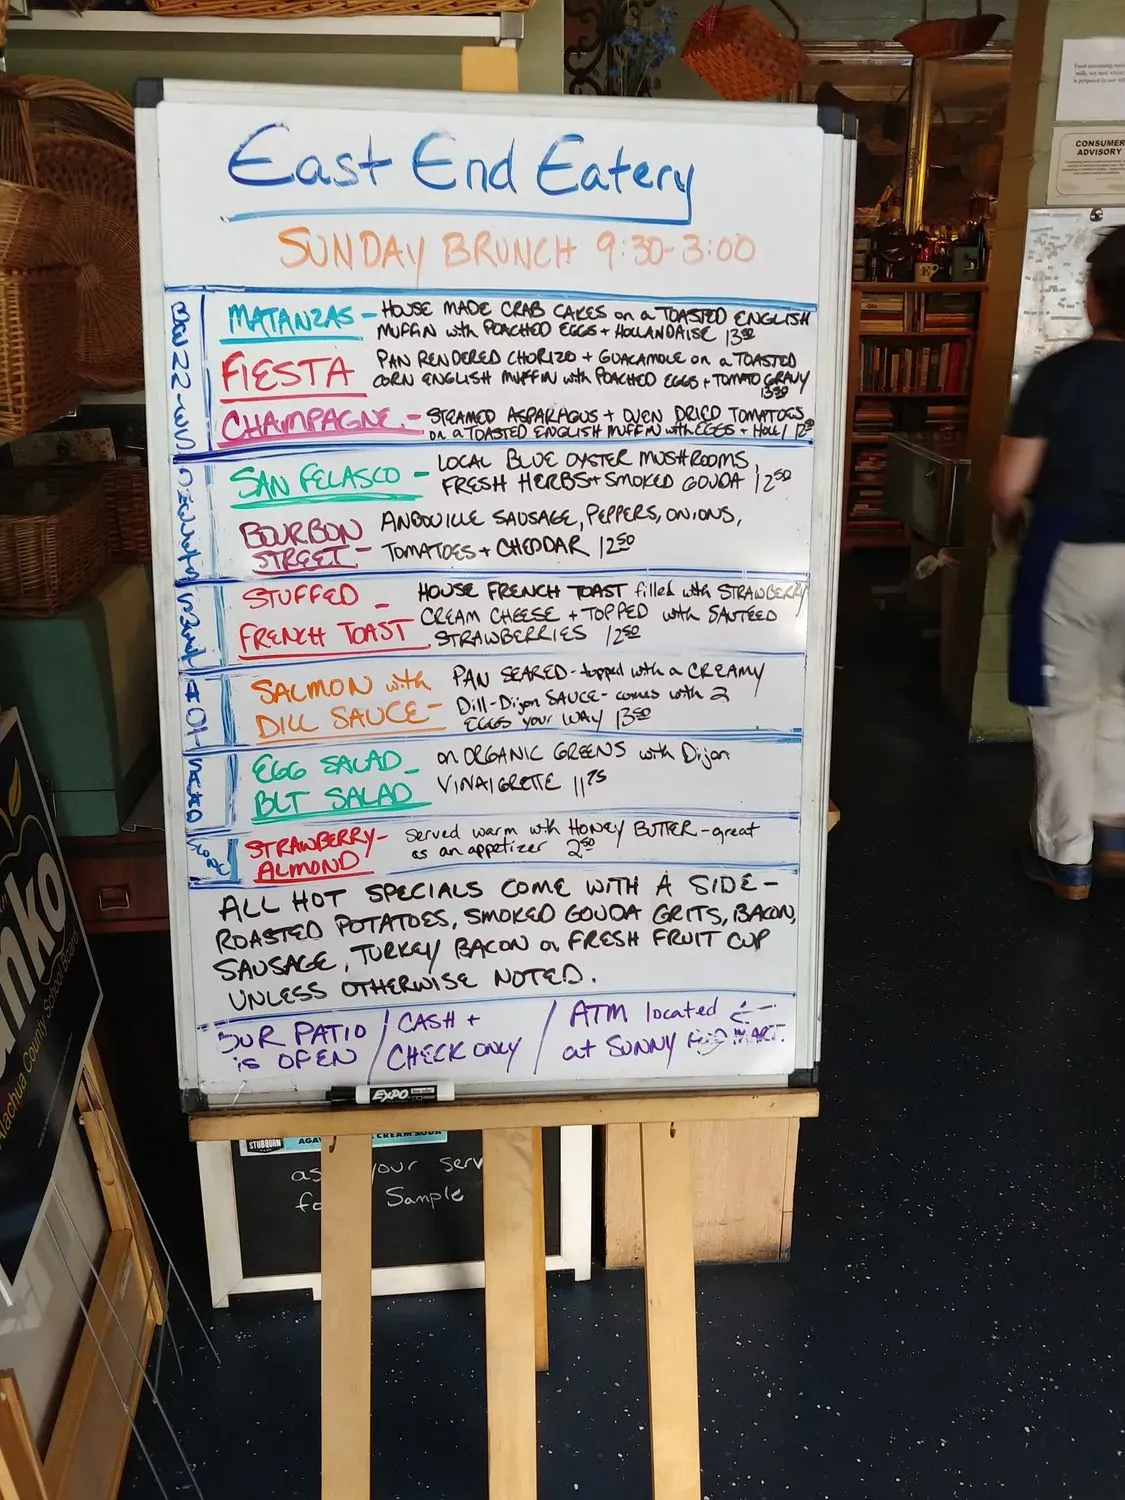 East End Eatery
SUNDAY BRUNCH 9:30-3:00
MATANZAS - HOUSE MADE CRAB CAKES on a TOASTED ENGLISH
MUFFIN with POACHED EGGS + HOLLANDAISE 13.50
FIESTA PAN RENDERED CHORIZO + GUACAMOLE on a TOASTED
CORN ENGLISH MUFFIN with POACHED EGGS + TOMATO GRAVY
13.50
CHAMPAGNE - STEAMED ASPARAGUS + OVEN DRIED TOMATOES
on a TOASTED ENGLISH MUFFIN with EGGS + HOLL
SAN FELASCO - LOCAL BLUE OYSTER MUSHROOMS,
FRESH HERBS + SMOKED GOUDA 12.50
BOURBON STREET - ANDOUILLE SAUSAGE, PEPPERS, ONIONS,
TOMATOES + CHEDDAR 12.50
STUFFED FRENCH TOAST - HOUSE FRENCH TOAST filled with STRAWBERRY
CREAM CHEESE + TOPPED with SAUTEED
STRAWBERRIES 12.50
SALMON with DILL SAUCE - PAN SEARED - topped with a CREAMY
Dill-Dijon SAUCE - comes with 2
EGGS your WAY 13.50
EGG SALAD BLT SALAD - on ORGANIC GREENS with Dijon
VINAIGRETTE 11.75
STRAWBERRY- ALMOND Served warm with HONEY BUTTER - great
as an appetizer 2.50
ALL HOT SPECIALS COME WITH A SIDE -
ROASTED POTATOES, SMOKED GOUDA GRITS, BACON,
SAUSAGE, TURKEY BACON or FRESH FRUIT CUP
UNLESS OTHERWISE NOTED.
OUR PATIO is OPEN / CASH + CHECK ONLY / ATM located ←
at SUNNY FOOD MART.
EXPO
STUBBORN
CREAM SODA
as your serv
Sample
Alachua County School Board
CONSUMER
ADVISORY